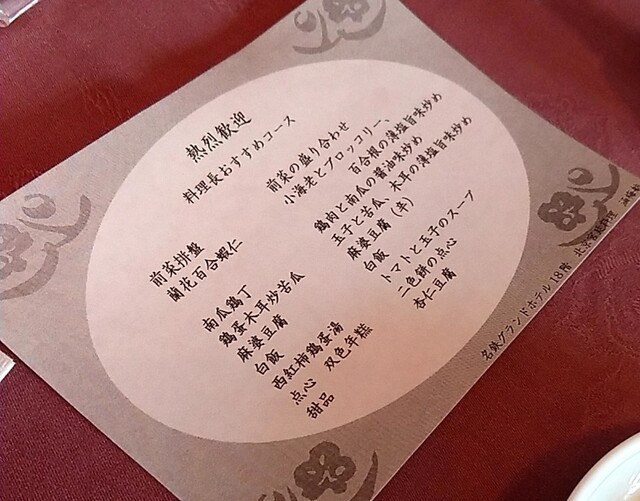 熱烈歓迎
料理長おすすめコース
前菜排盤
前菜の盛り合わせ
蘭花百合蝦仁
小海老とブロッコリー、
百合根の薄塩旨味炒め
南瓜鶏丁
鶏肉と南瓜の醤油味炒め
鶏蛋木耳炒苦瓜
玉子と苦瓜、木耳の薄塩旨味炒め
麻婆豆腐
麻婆豆腐(辛)
白飯
白飯
西紅柿鶏蛋湯
トマトと玉子のスープ
点心 双色年糕
二色餅の点心
甜品
杏仁豆腐
名鉄グランドホテル18階 北京宮廷料理